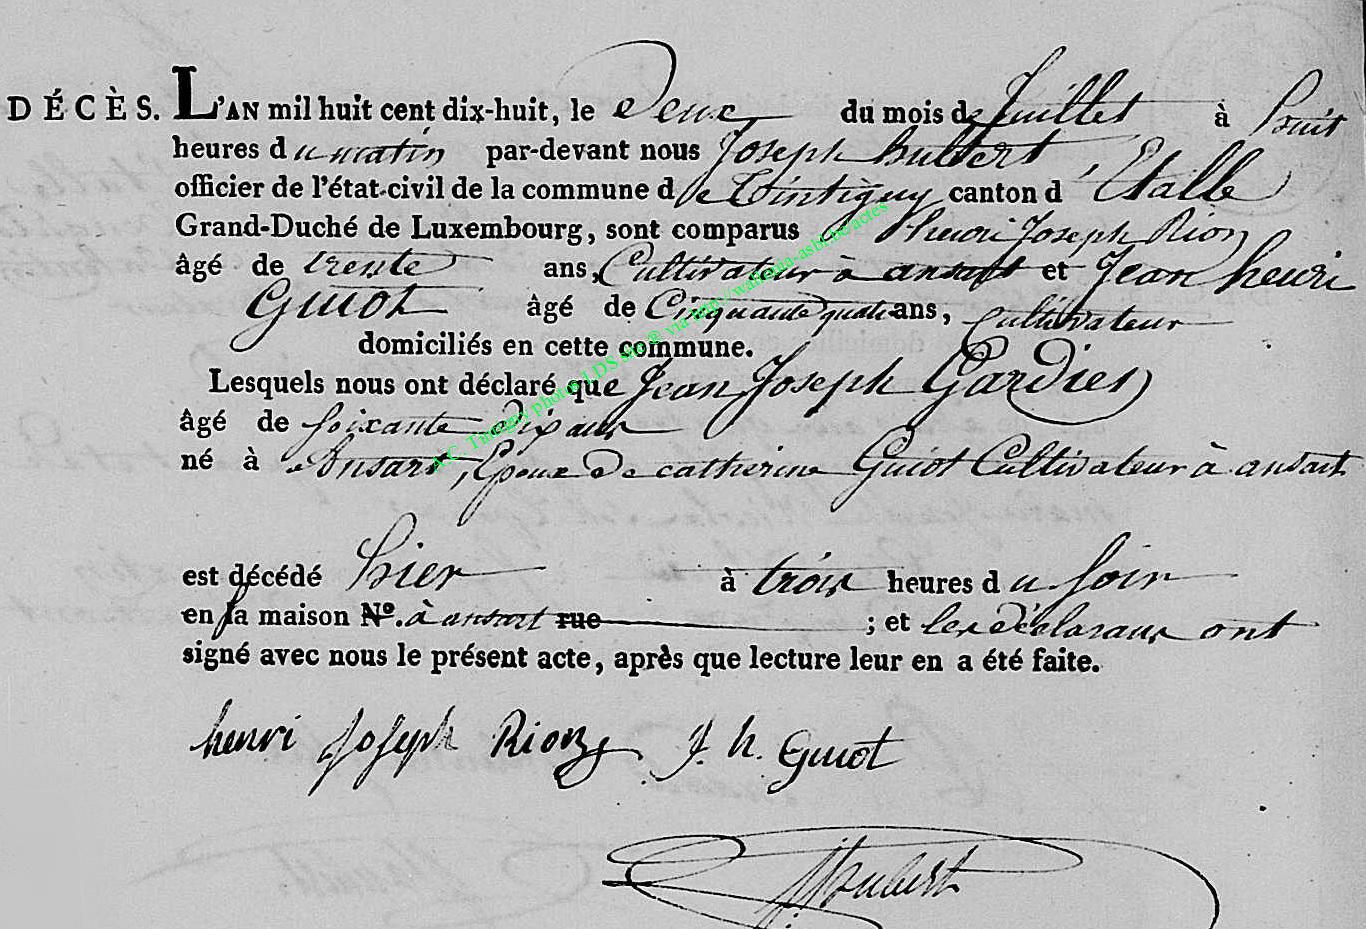 DÉCÈS. L'AN mil huit cent dix-huit, le Deux du mois de Juillet à huit
heures du matin par-devant nous Joseph hubert
officier de l'état-civil de la commune de Tintigny canton d'Etalle
Grand-Duché de Luxembourg, sont comparus henri Joseph Rion
âgé de trente ans, Cultivateur à ansart et Jean henri
Guiot âgé de Cinquante quatre ans, Cultivateur
domiciliés en cette commune.
Lesquels nous ont déclaré que Jean Joseph Gardier
âgé de soixante dix ans
né à Ansart, Epoux De catherine Guiot Cultivateur à ansart
est décédé hier à trois heures du soir
en sa maison N°. à ansart rue ; et les Déclarans ont
signé avec nous le présent acte, après que lecture leur en a été faite.
henri joseph Rion J. h. Guiot
Hubert
A.C. Tintigny photos LDS site ® via http://wallonia-asbl.be/actes